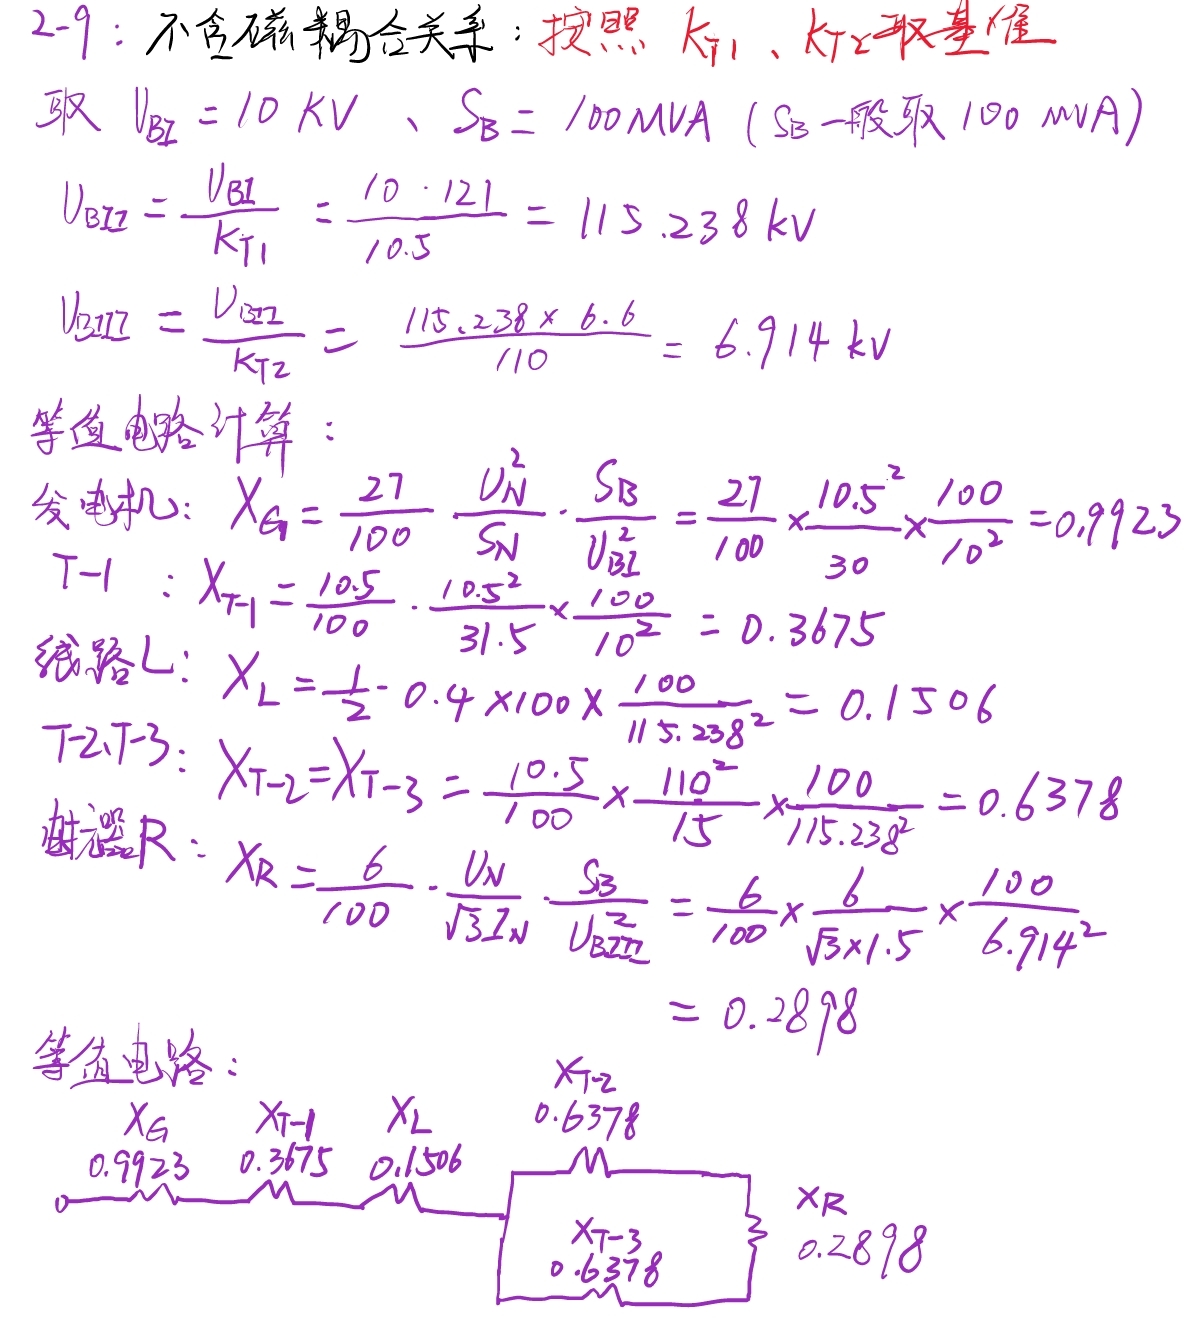 2-9：不含磁耦合关系：按照 K_T1、K_T2取基准
取 U_BI = 10 KV 、S_B = 100MVA (S_B一般取 100 MVA)
U_BII = U_BI / K_T1 = 10 · 121 / 10.5 = 115.238 kV
U_BIII = U_BII / K_T2 = 115.238 × 6.6 / 110 = 6.914 kV
等值电路计算：
发电机：X_G = 27/100 U_N²/S_N · S_B/U_BI² = 27/100 × 10.5²/30 × 100/10² = 0.9923
T-1 : X_T-1 = 10.5/100 · 10.5²/31.5 × 100/10² = 0.3675
线路L：X_L = 1/2 · 0.4 × 100 × 100/115.238² = 0.1506
T-2、T-3：X_T-2 = X_T-3 = 10.5/100 × 110²/15 × 100/115.238² = 0.6378
电抗器R：X_R = 6/100 · U_N/√3I_N · S_B/U_BIII² = 6/100 × 6/√3×1.5 × 100/6.914²
= 0.2898
等值电路：
X_G X_T-1 X_L X_T-2
0.9923 0.3675 0.1506 0.6378
X_T-3 X_R
0.6378 0.2898